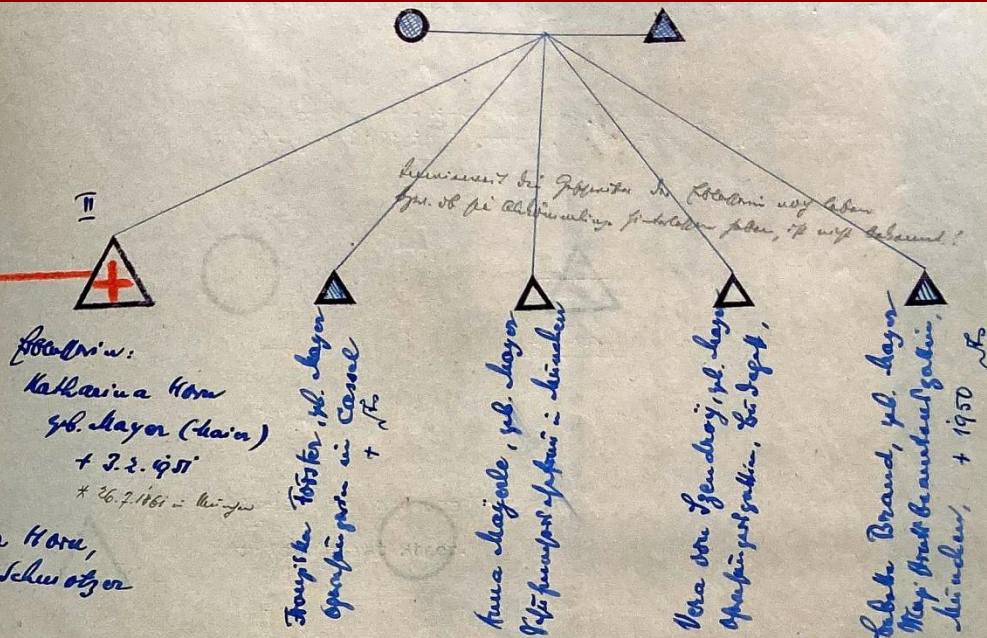 II
Inwieweit die Geschwister der Erblasserin noch leben
bzw. ob sie Abkömmlinge hinterlassen haben, ist nicht bekannt!
Erblasserin:
Katharina Horn
geb. Mayer (Maier)
+ 3.2.1951
* 26.7.1861 in München
Horn,
Schmotzer
Franziska Forster, geb. Mayer
Opernsängerin in Cassel
+
Anna Mayerle, geb. Mayer
in München
Vera von Szendröÿ, geb. Mayer
Opernsängersgattin, Budapest,
Babette Brand, geb. Mayer
Maj
München, + 1950